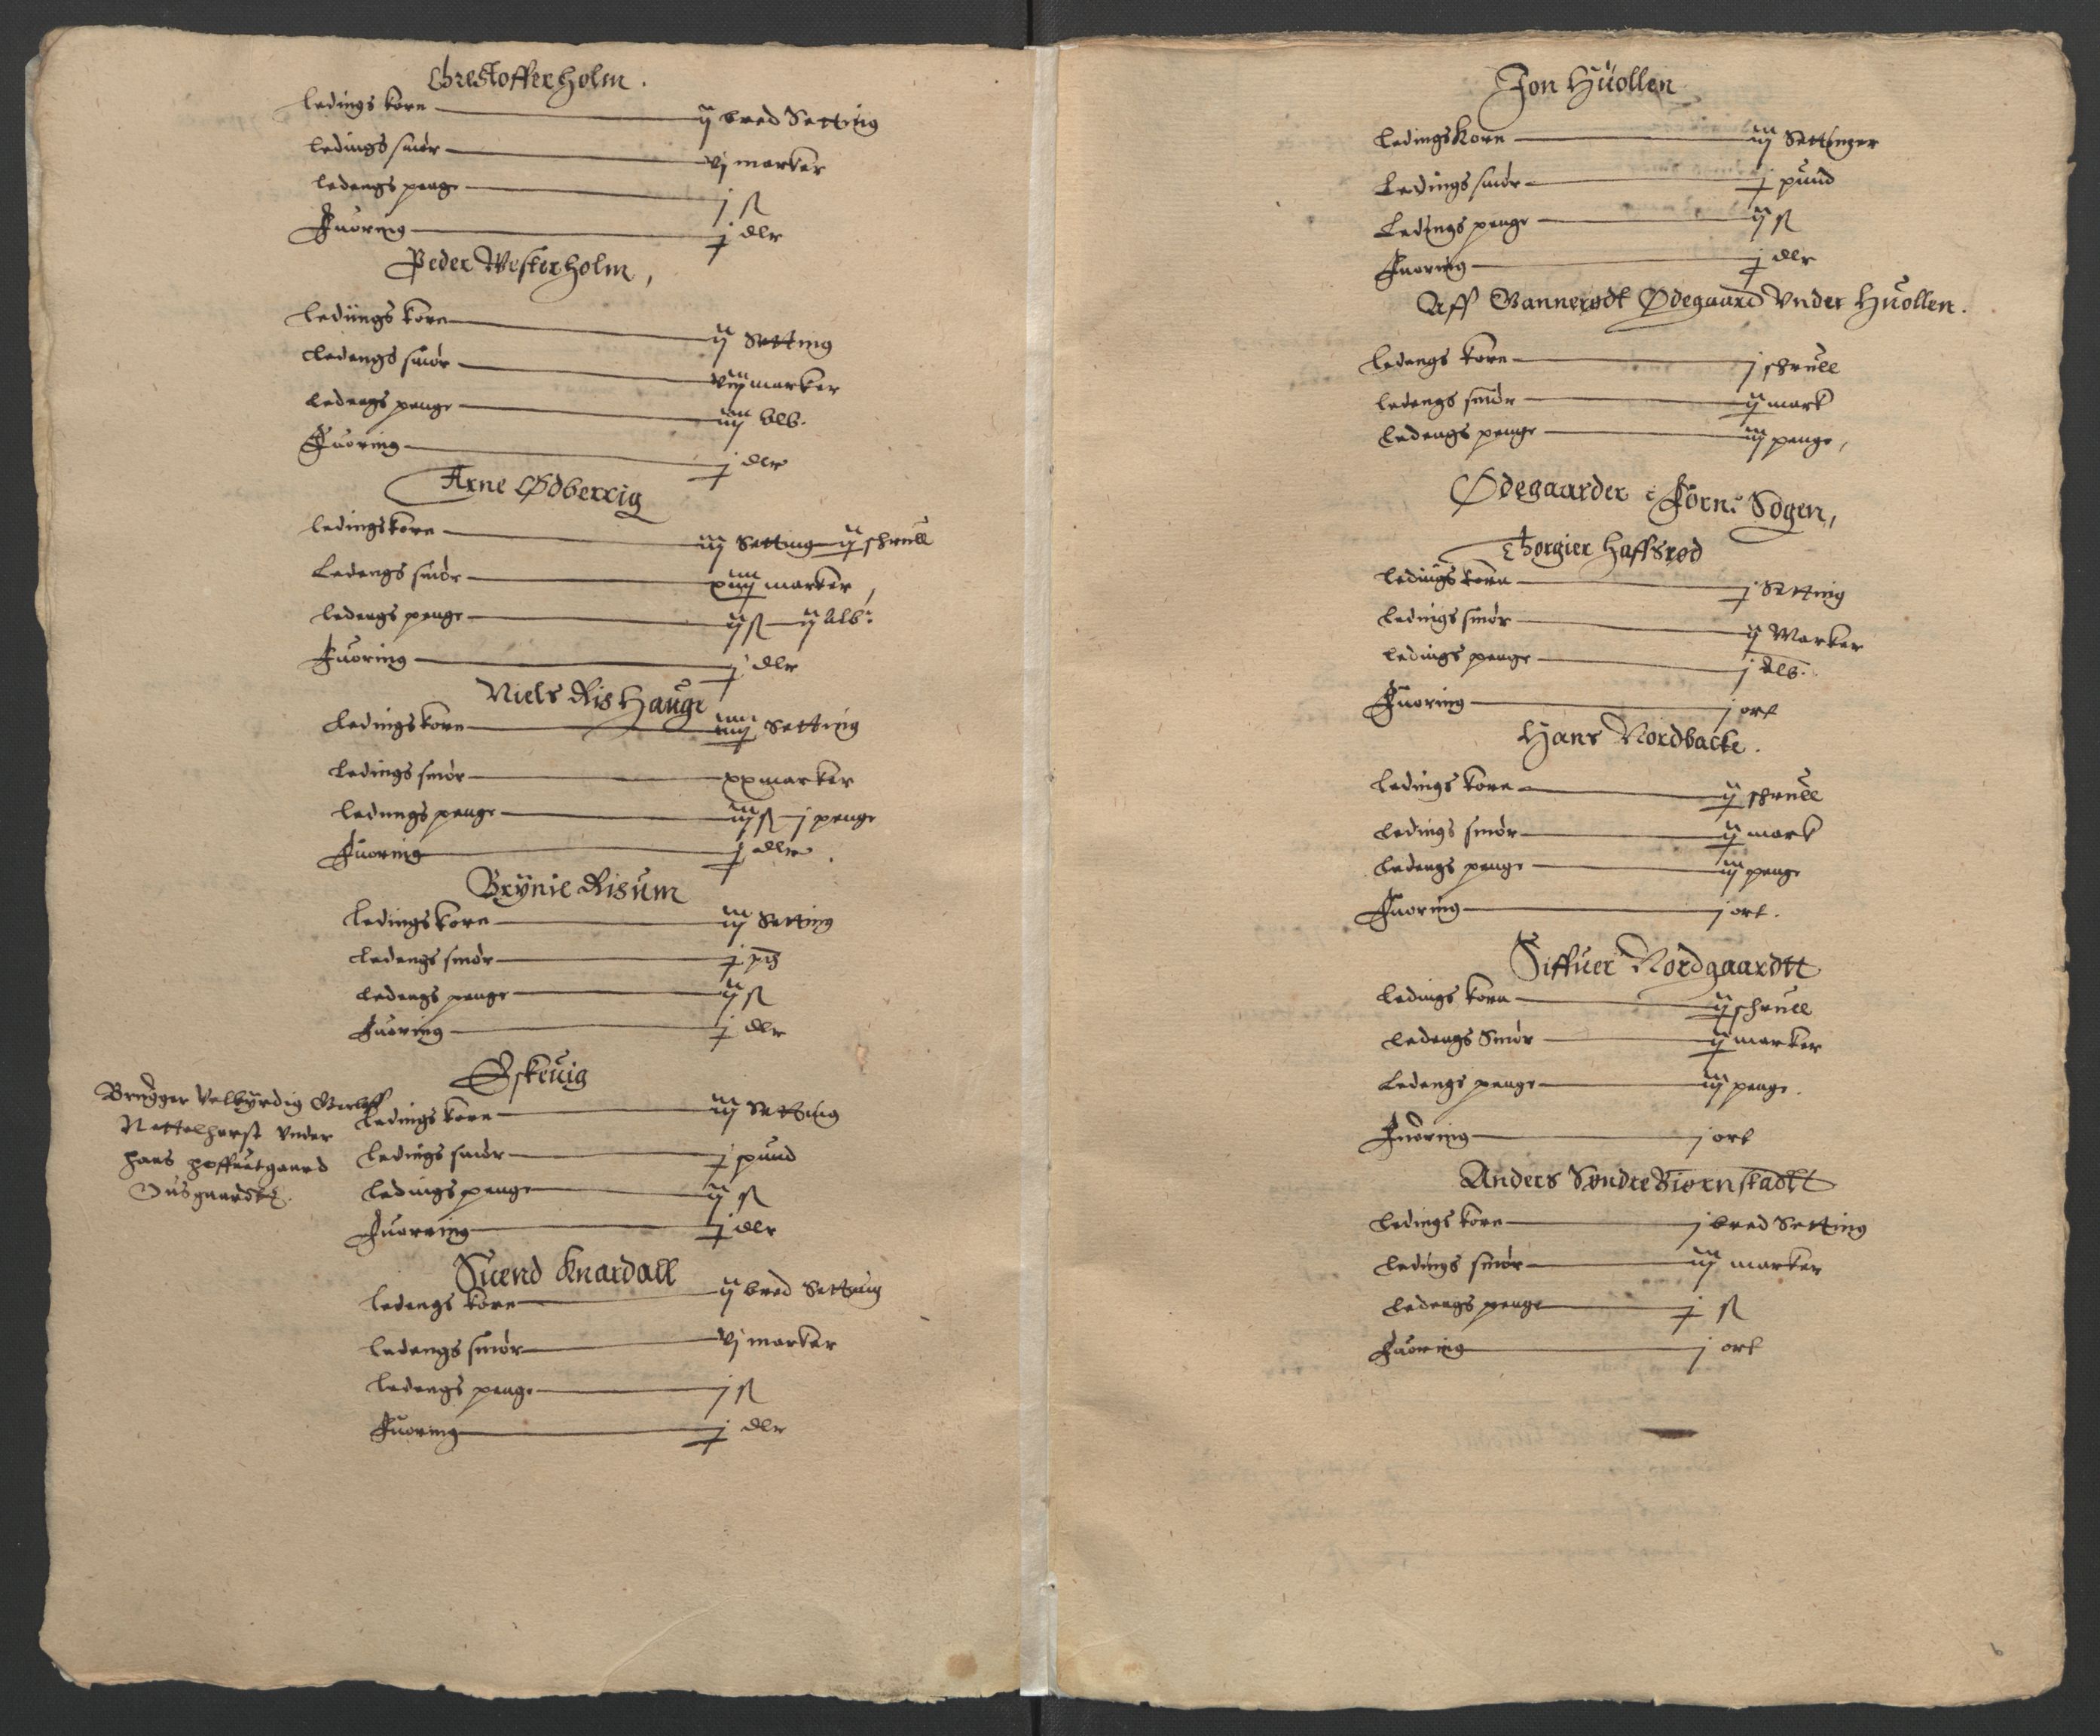 Chrestoffer Holm.
Ledings korn — ij bred Setting
Ledings smør — vj marker
Ledengs penge — j ß
Fuoring — j dlr
Peder Westerholm,
Lediings korn — ij Setting
Ledengs smør — viij marker
Ledengs penge — iiij alb.
Fuoring — j dlr
Arne Ødberrig
Ledings korn — iij Setting ij schrull
Ledengs smør — xiiij marker,
Ledengs penge — ij ß ij alb:
Fuoring — j dlr
Niels Ris Hauge
Ledings korn — iiiij Setting
Ledings smør — xx marker
Ledings penge — iij ß j penge
Fuoring — j dlr.
Brÿnie Risum
Ledings korn — iij Setting
Ledengs smør — j pd
Ledengs penge — ij ß
Fuoring — j dlr
Øskeuig
Brugger Velbÿrdig Gerloff
Nettelhorst Vnder
hans hoffuetgaard

Ledings korn — iij Setting
Ledings smør — j pund
Ledings penge — ij ß
Fuorring — j dlr
Suend Knardall
Ledengs korn — ij bred Setting
Ledengs smør — vj marker
Ledengs penge — j ß
Fuoring — j dlr
Jon Huollen
Ledings Korn — iij Settinger
Ledings smør — j pund
Ledings penge — ij ß
Fuoring — j dlr
Aff Bannerødt Ødegaard Vnder Huollen.
Ledengs korn — j schrull
Ledengs smør — ij mark
Ledengs penge — iij penge,
Ødegaarder i Førn: Sogen,
Thorgier Haffsrød
Ledings korn — j Setting
Ledings smør — ij Marker
Ledings penge — j alb.
Fuoring — j ort
Hans Nordbacke.
Ledings korn — ij schrull
Ledings smør — ij mark
Ledengs penge — iij penge
Fuoring — j ort.
Siffuer Nordgaardtt
Ledings korn — ij schrull
Ledengs Smør — ij marker
Ledengs penge — iij penge.
Fuoring — j ort
Anders Søndre Biørnstadtt
Ledings korn — j bred Setting
Ledings smør — iij marker
Ledengs penge — j ß
Fuoring — j ort
6